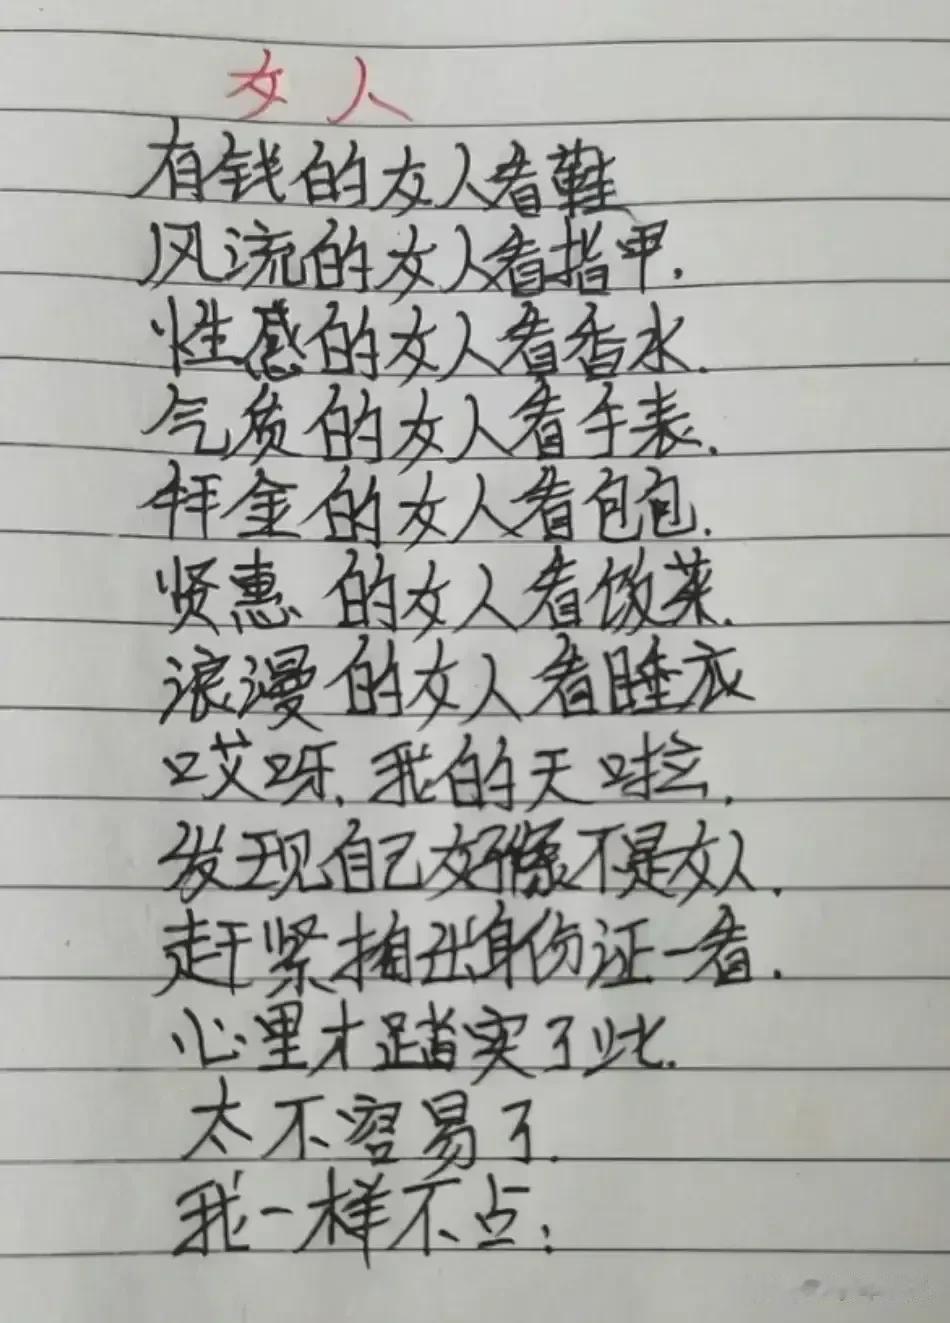 女人
有钱的女人看鞋
风流的女人看指甲.
性感的女人看香水.
气质的女人看手表.
拜金的女人看包包.
贤惠的女人看饭菜.
浪漫的女人看睡衣
哎呀.我的天啦.
发现自己好像不是女人.
赶紧掏出身份证一看.
心里才踏实了些.
太不容易了.
我一样不占: